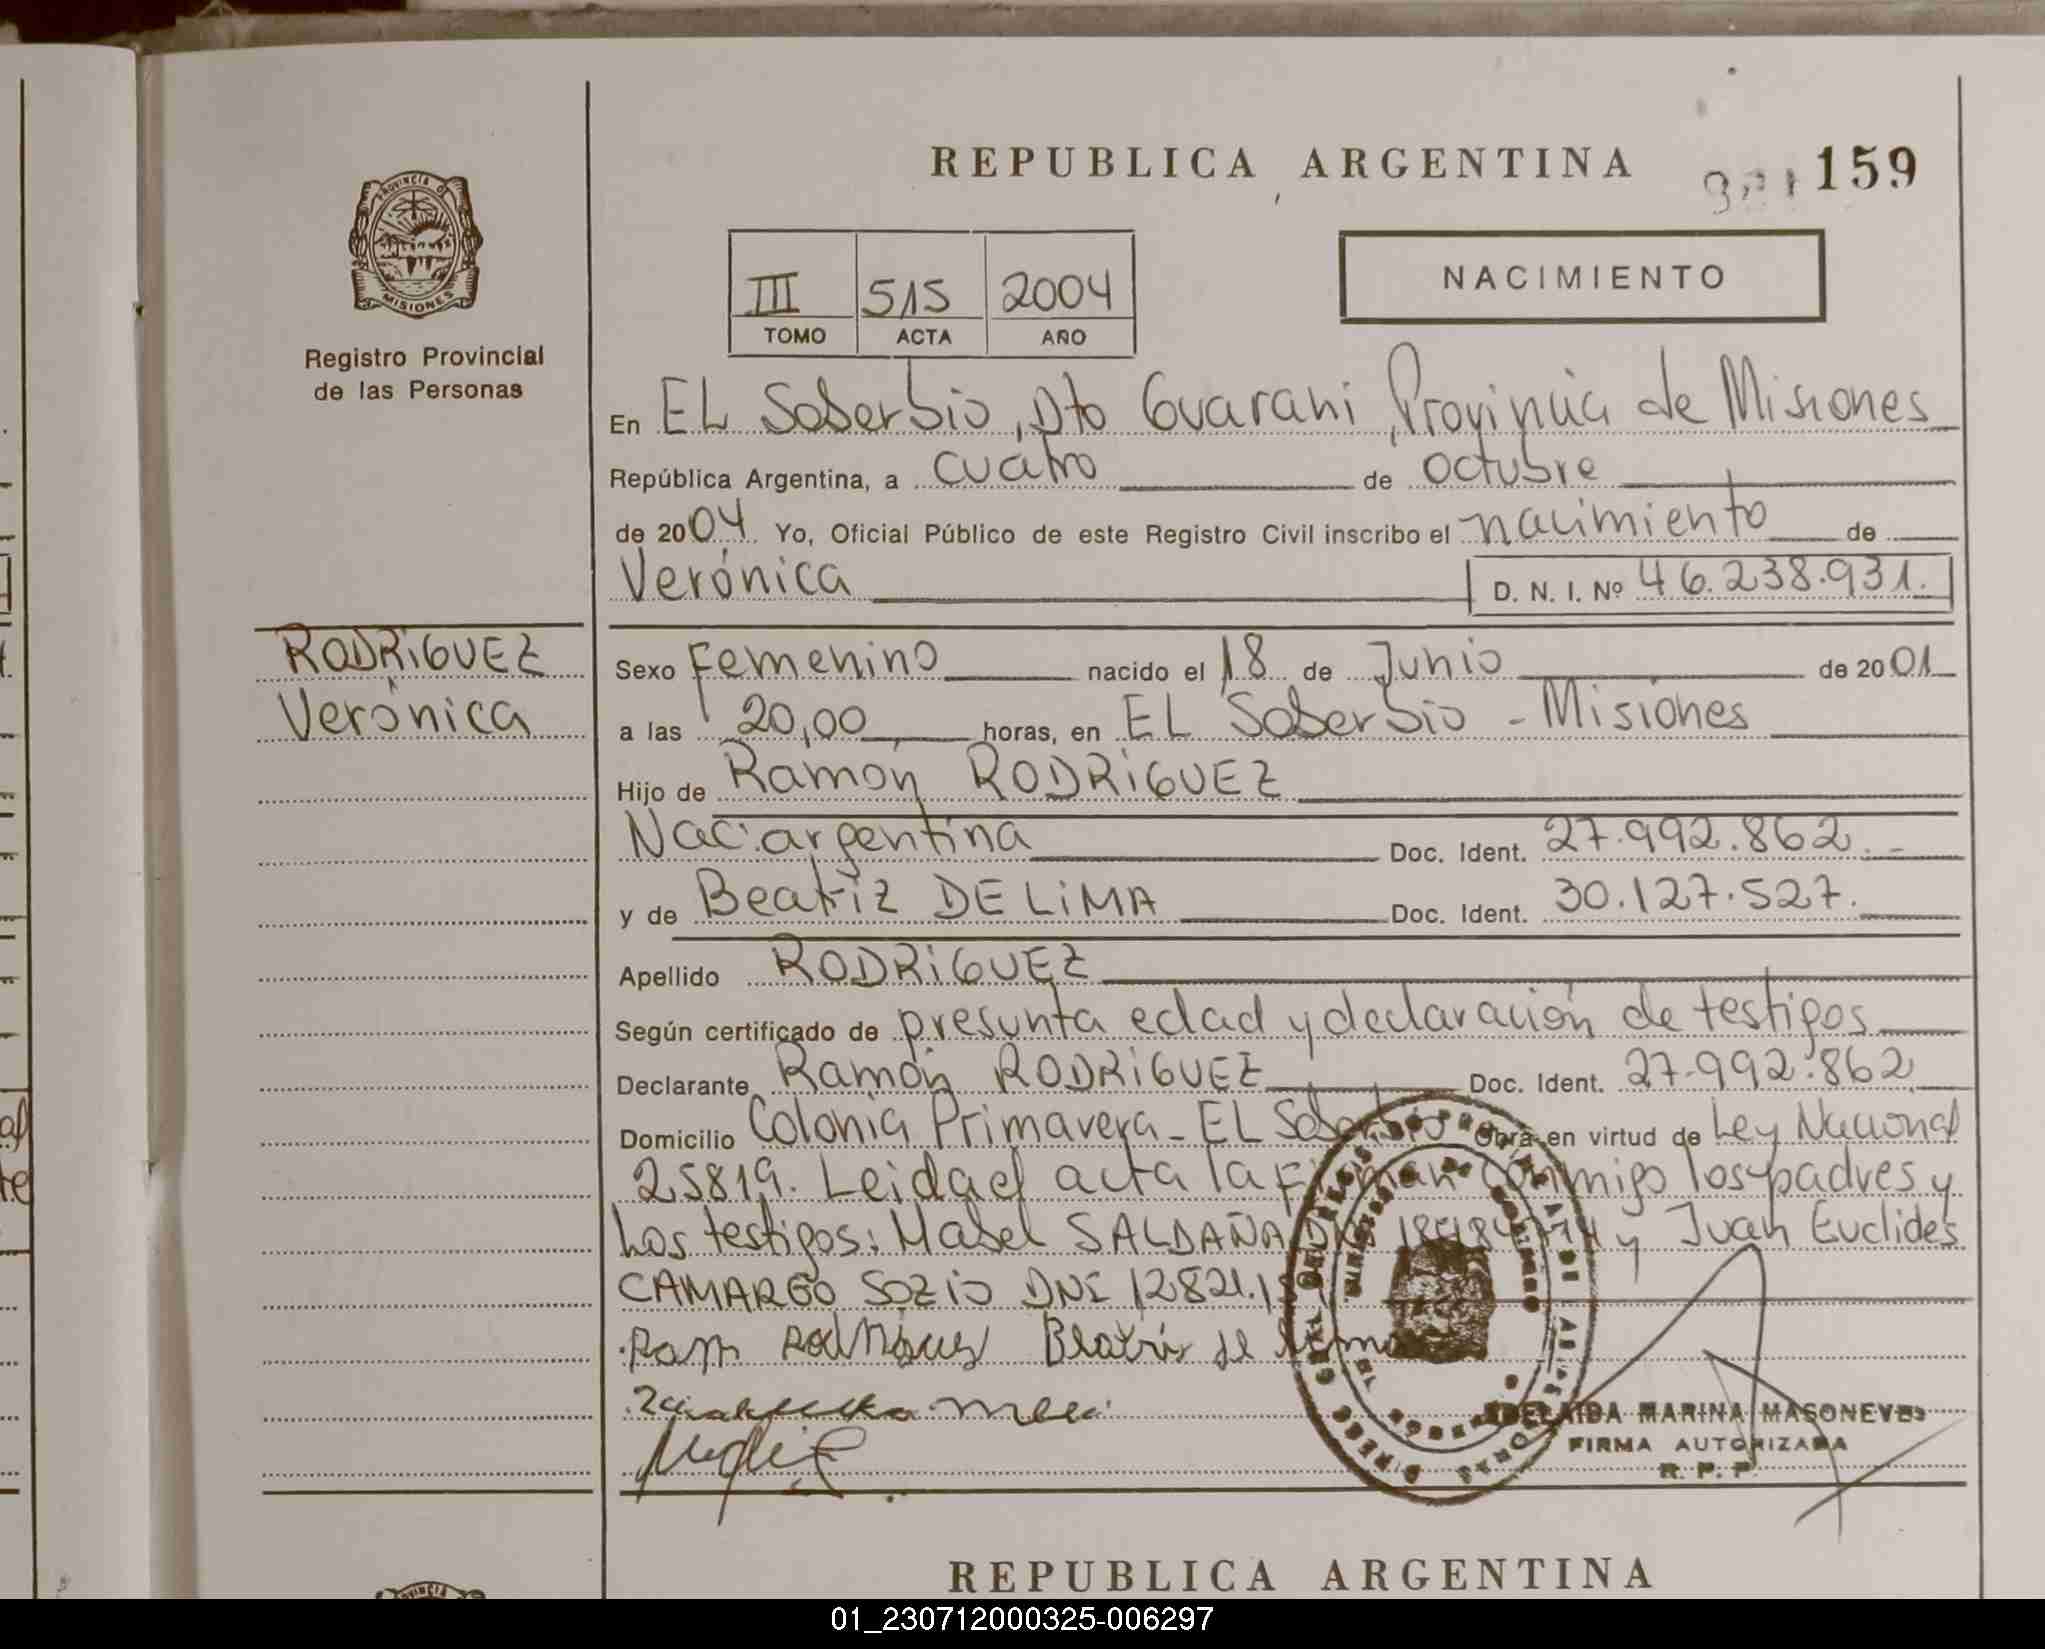 REPUBLICA ARGENTINA
159
PROVINCIA D
MISIONES
Registro Provincial
de las Personas
III 515 2004
TOMO ACTA AÑO
NACIMIENTO
En EL Soberbio, Dto Guarani, Provincia de Misiones
República Argentina, a cuatro de octubre
de 2004. Yo, Oficial Público de este Registro Civil inscribo el nacimiento de
Verónica D. N. I. Nº 46.238.931.
RODRiGUEZ
Verónica
Sexo Femenino nacido el 18 de Junio de 2001
a las 20,00 horas, en EL Soberbio - Misiones
Hijo de Ramón RODRiGUEZ
Nac: argentina Doc. Ident. 27.992.862.-
y de Beatriz DE LiMA Doc. Ident. 30.127.527.
Apellido RODRiGUEZ
Según certificado de presunta edad y declaración de testigos
Declarante Ramón RODRiGUEZ Doc. Ident. 27.992.862
Domicilio Colonia Primavera - EL Soberbio Obra en virtud de Ley Nacional
25819. Leida el acta la firman conmigo los padres y
Los testigos: Mabel SALDAÑA y Juan Euclides
CAMARGO SOZiO DNI 12821.
Beatris de lima
MARINA MASONEVE
FIRMA AUTORIZADA
R. P. P.
REPUBLICA ARGENTINA
01_230712000325-006297